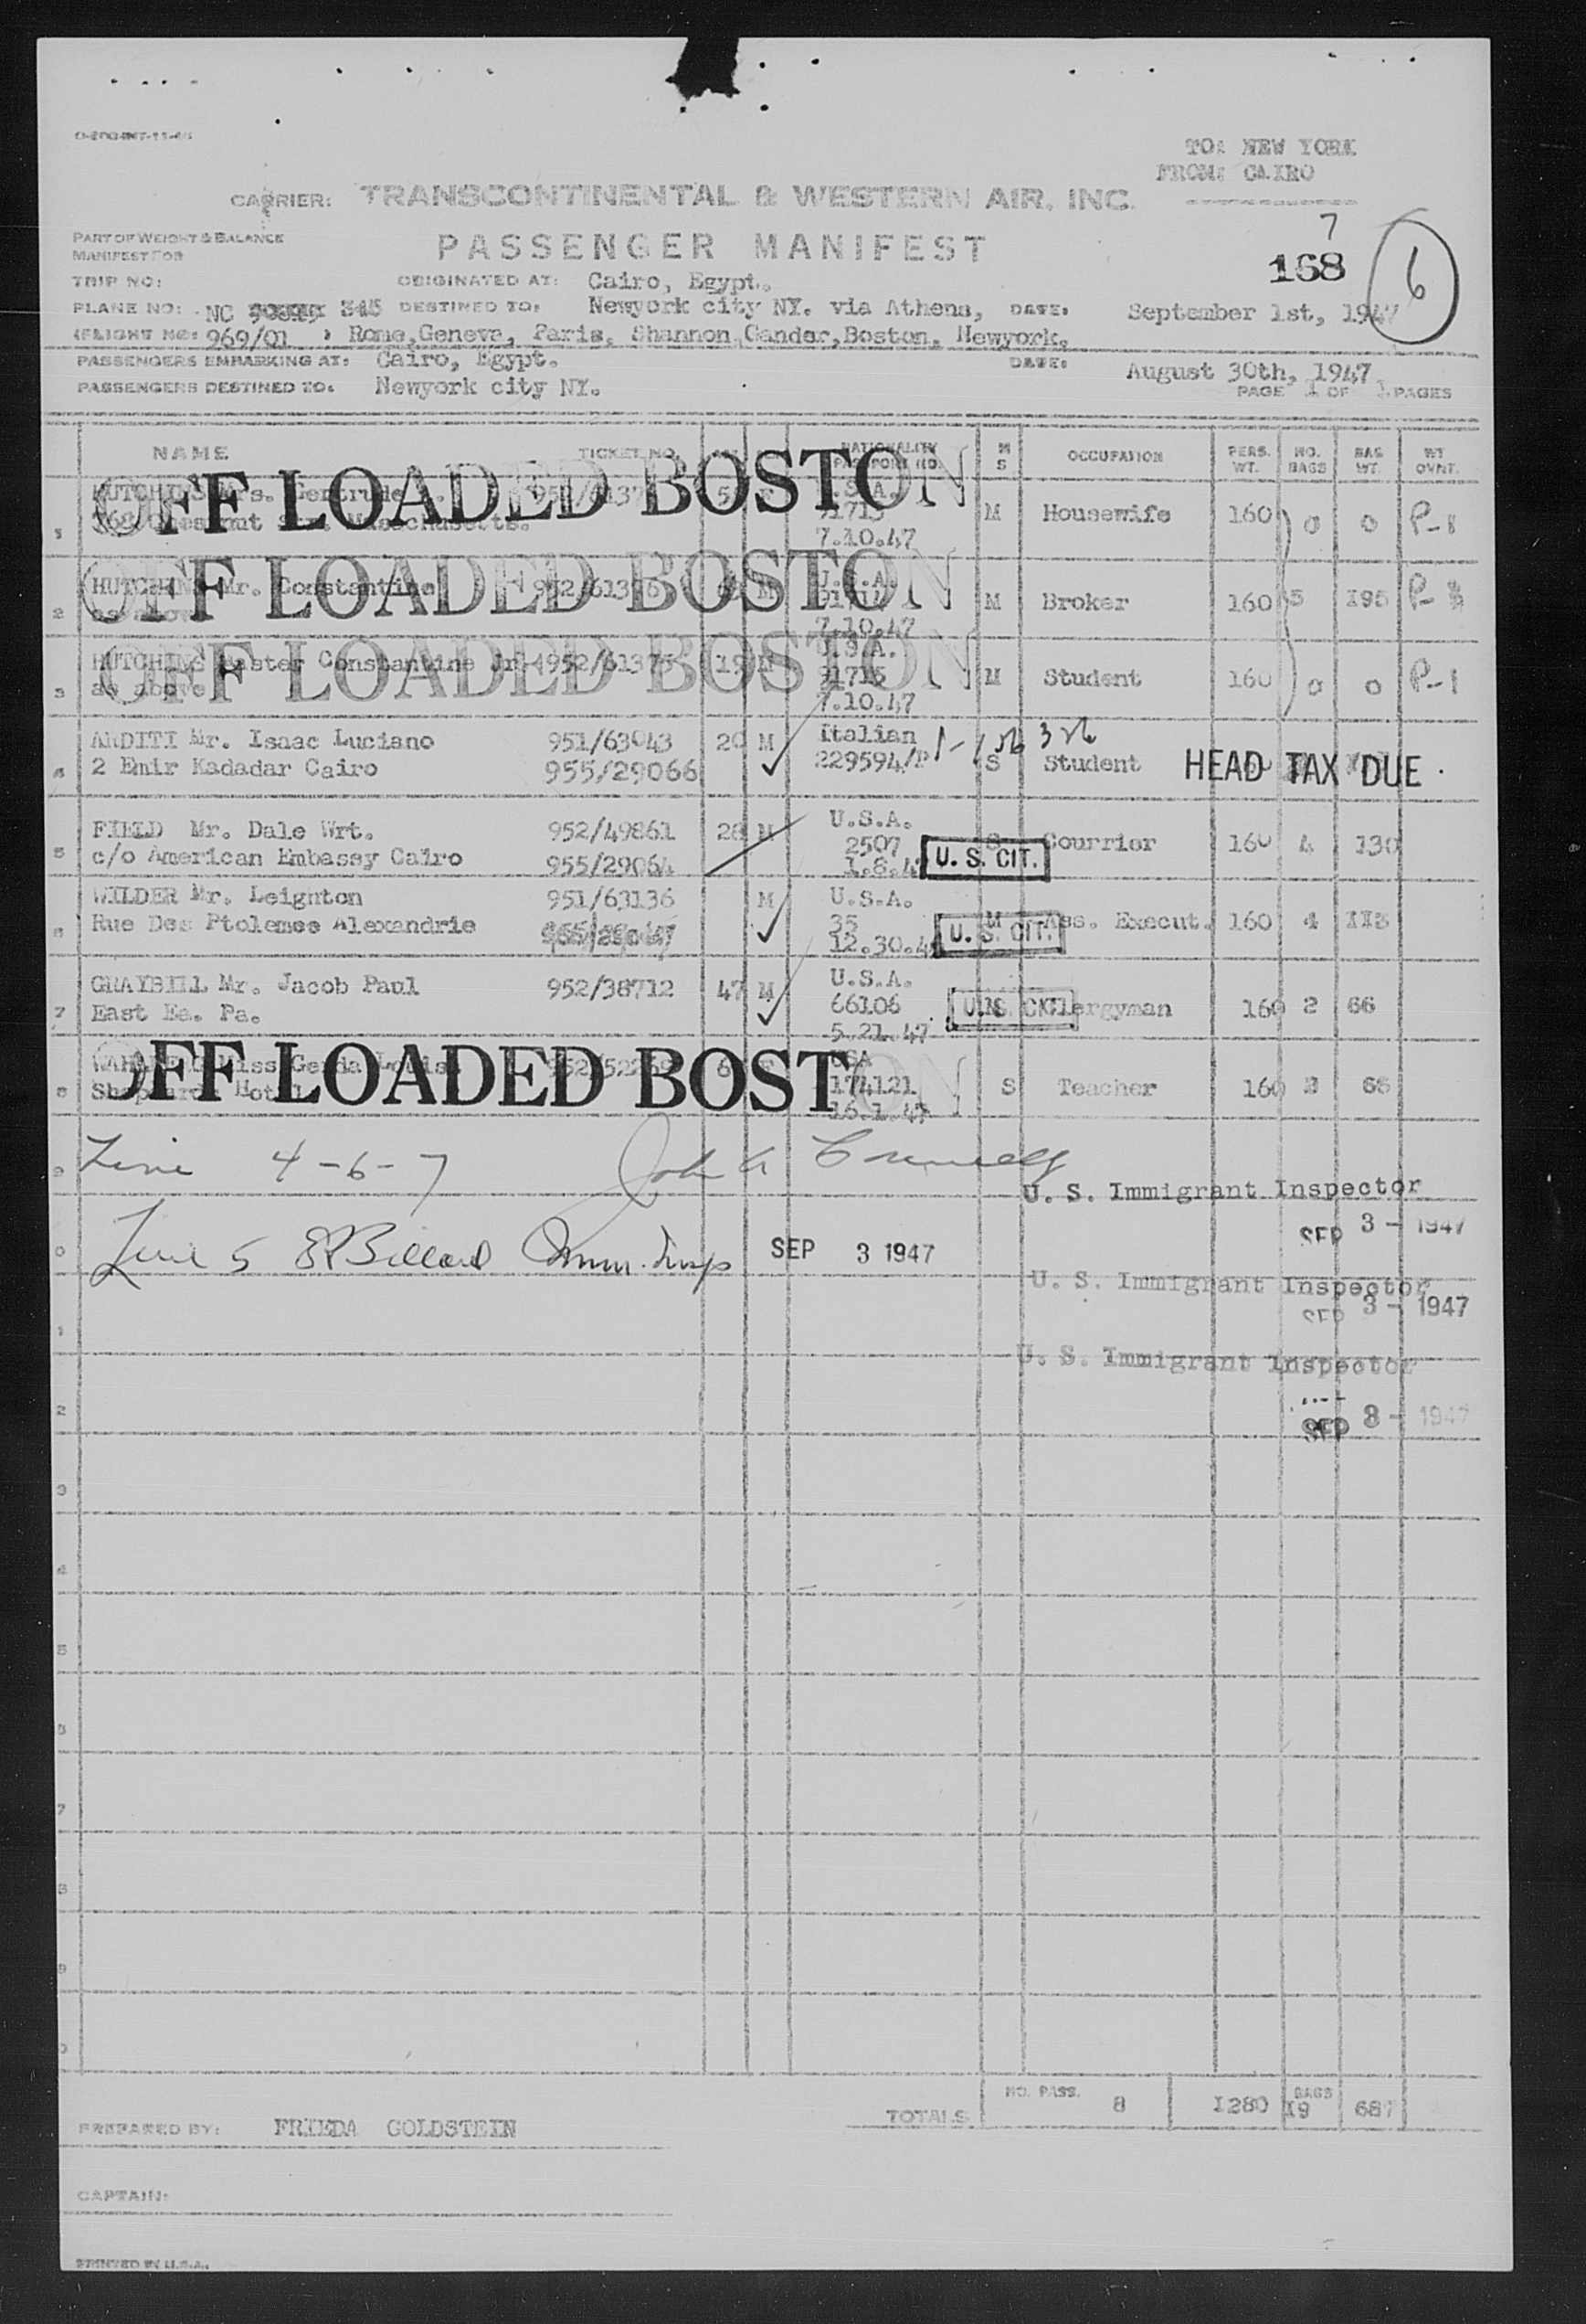 TO: NEW YORK
FROM: CAIRO
CARRIER: TRANSCONTINENTAL & WESTERN AIR, INC.
PART OF WEIGHT & BALANCE
MANIFEST FOR
PASSENGER MANIFEST
7
168
6
TRIP NO: ORIGINATED AT: Cairo, Egypt.
PLANE NO: NC 345 DESTINED TO: Newyork city NY. via Athens, DATE: September 1st, 1947
(FLIGHT NO: 969/01 ) Rome, Geneva, Paris, Shannon, Gander, Boston, Newyork.
PASSENGERS EMBARKING AT: Cairo, Egypt. DATE: August 30th, 1947
PASSENGERS DESTINED TO: Newyork city NY. PAGE 1 OF 1 PAGES
NAME TICKET NO. NATIONALITY PASSPORT NO. M S OCCUPATION PERS. WT. NO. BAGS BAG WT. WT OVNT.
OFF LOADED BOSTON
1 HUTCHINS Mrs. Gertrude M Housewife 160 0 0 P-1
Chestnut Str. Massachusetts. 7.10.47
OFF LOADED BOSTON
2 HUTCHINS Mr. Constantine M Broker 160 5 195
as above 7.10.47
OFF LOADED BOSTON
3 HUTCHINS Master Constantine Jr. 952/61375 19 M U.S.A. 91715 M Student 160 0 0 P-1
as above 7.10.47
ARDITI Mr. Isaac Luciano 951/63043 20 M Italian
4 2 Emir Kadadar Cairo 955/29066 229594/P S Student HEAD TAX DUE.
FIELD Mr. Dale Wrt. 952/49861 28 M U.S.A. 2507 S Courrier 160 4 130
5 c/o American Embassy Cairo 955/29064 1.8.47 U. S. CIT.
WILDER Mr. Leighton 951/63136 M U.S.A.
6 Rue Des Ptolemes Alexandrie 35 M Ass. Execut. 160 4 II3
12.30.4 U. S. CIT.
GRAYBILL Mr. Jacob Paul 952/38712 47 M U.S.A.
7 East Ea. Pa. 66106 U. S. CIT. Clergyman 160 2 66
5.21.47
OFF LOADED BOSTON
8 Miss Gerda USA 174121 S Teacher 160 66
Hotel 16.1.47
9 Line 4-6-7 John A
U. S. Immigrant Inspector
SEP 3 - 1947
Line 5 Billard Imm. Insp SEP 3 1947
U. S. Immigrant Inspector
SEP 3 - 1947
U. S. Immigrant Inspector
SEP 3 - 1947
TOTALS NO. PASS. 8 I280 BAGS I9 687
PREPARED BY: FRIEDA GOLDSTEIN
CAPTAIN:
PRINTED IN U.S.A.